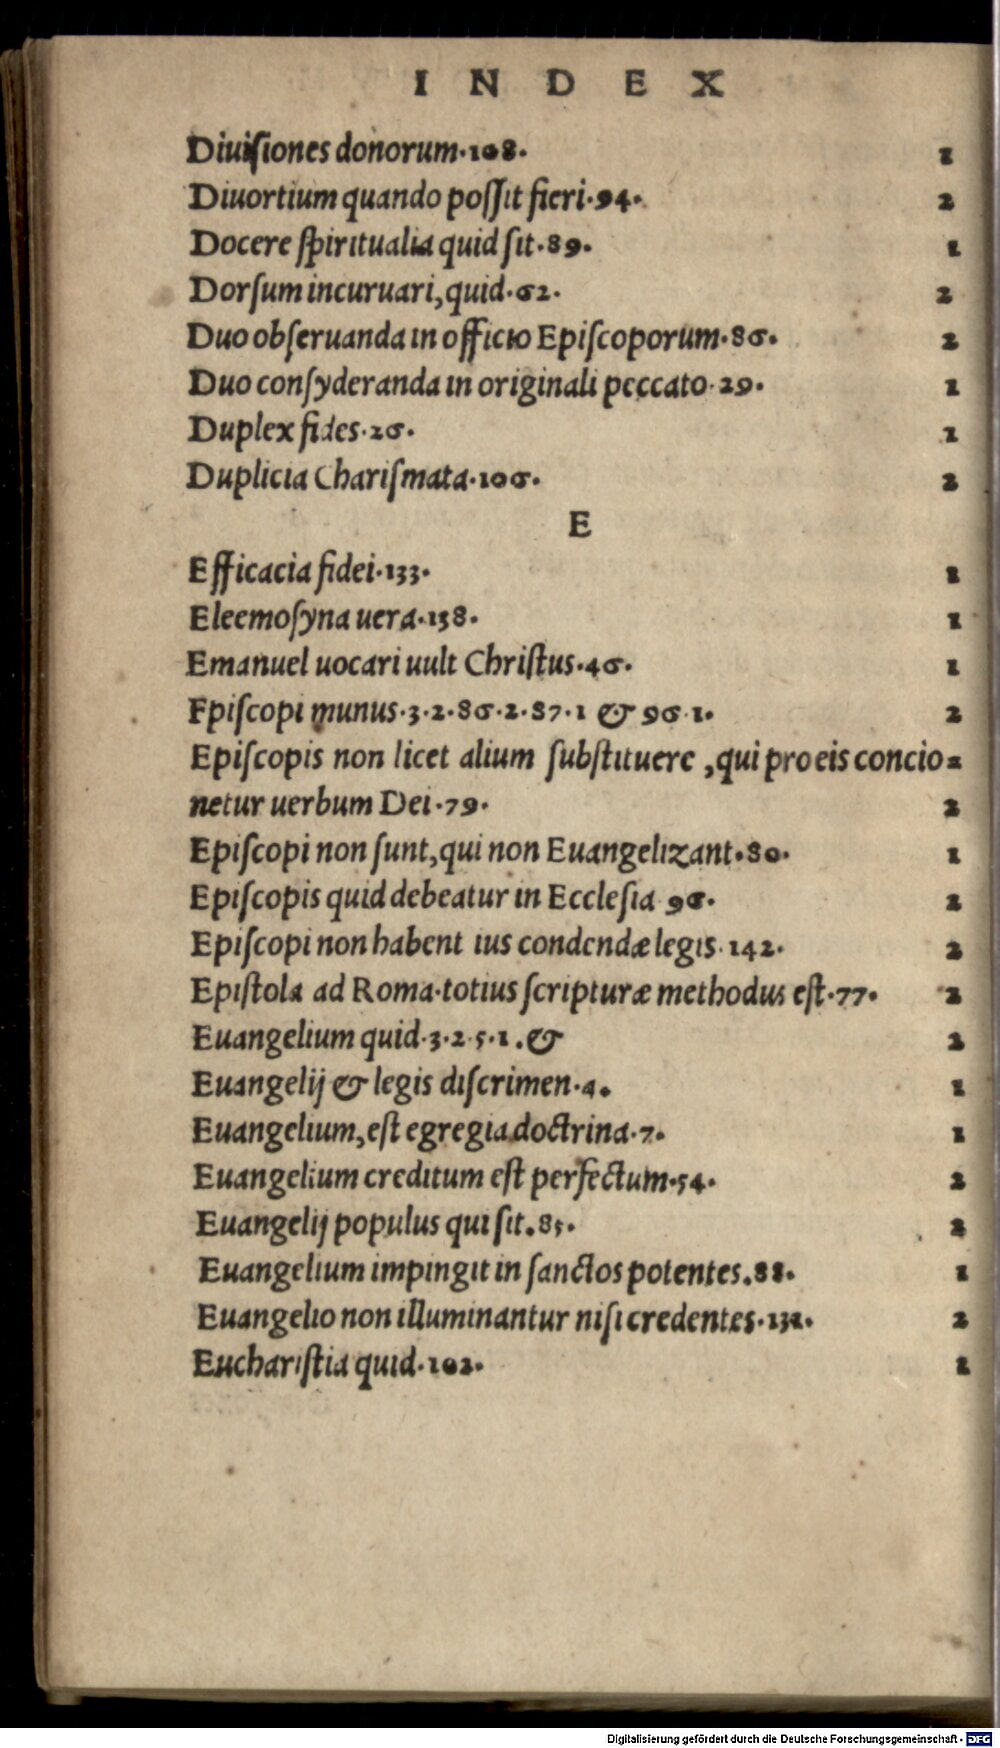 INDEX
Diuiſiones donorum·108· 1
Diuortium quando poſſit fieri·94· 2
Docere ſpiritualia quid ſit·89· 1
Dorſum incuruari, quid·62· 2
Duo obſeruanda in officio Epiſcoporum·86· 2
Duo conſyderanda in originali peccato·29· 1
Duplex fides·26· 1
Duplicia Chariſmata·106· 2
E
Efficacia fidei·133· 1
Eleemoſyna uera·138· 1
Emanuel uocari uult Chriſtus·46· 1
Epiſcopi munus·3·2·86·2·87·1 & 96·1· 2
Epiſcopis non licet alium ſubſtituere, qui pro eis concio-
netur uerbum Dei·79· 2
Epiſcopi non ſunt, qui non Euangelizant·80· 1
Epiſcopis quid debeatur in Eccleſia·96· 2
Epiſcopi non habent ius condendæ legis·142· 2
Epiſtola ad Roma·totius ſcripturæ methodus eſt·77· 2
Euangelium quid·3·2·5·1·& 2
Euangelij & legis diſcrimen·4· 1
Euangelium, eſt egregia doctrina·7· 1
Euangelium creditum eſt perfectum·54· 2
Euangelij populus qui ſit·85· 2
Euangelium impingit in ſanctos potentes·88· 1
Euangelio non illuminantur niſi credentes·132· 2
Euchariſtia quid·102· 1
Digitalisierung gefördert durch die Deutsche Forschungsgemeinschaft - DFG